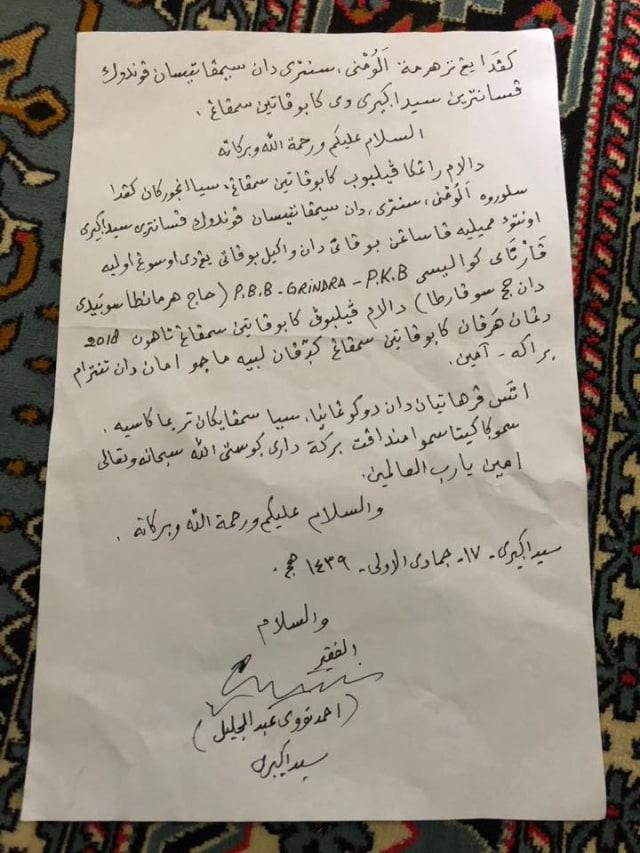 كڤدا يڠ ترهرمة الومني، سنتري دان سيمڤاتيسان ڤوندوك
ڤسانترين سيداݢيري دي كابوڤاتين سمڤاڠ.
السلام عليكم ورحمة الله وبركاته
دالم راڠكا ڤيلبوب كابوڤاتين سمڤاڠ، سيا اڠجوركان كڤدا
سلوروه الومني، سنتري، دان سيمڤاتيسان ڤوندوك ڤسانترين سيداݢيري
اونتوء ميليه ڤاساڠن بوڤاتي دان واكيل بوڤاتي يڠ دي اوسوڠ اوليه
ڤارتاي كواليسي P.B.B - GRINDRA - P.K.B (حاج هرمانطا سوبيدي
دان حج سوڤارطا) دالم ڤيلبوڤ كابوڤاتين سمڤاڠ تاهون 2018
دڠان هرڤان كابوڤاتين سمڤاڠ كدڤان لبيه ماجو امان دان تنترام
براكه - آمين.
اتس ڤرهاتيان دان دوكوڠانڽا، سيا سمڤايكان تريما كاسيه.
سموݢا كيتا سموا منداڤت بركة داري ݢوستي الله سبحانه وتعالى
امين يارب العالمين.
والسلام عليكم ورحمة الله وبركاته.
سيداݢيري - ١٧ - جمادى الاولى - ١٤٣٩ هج.
والسلام
الفقير
(احمد نووي عبد الجليل)
سيداݢيري